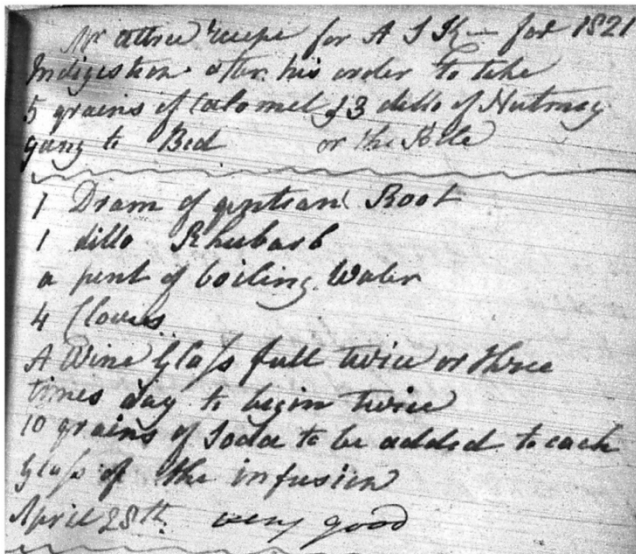 Mr Attree Recipe for A S K for 1821
Indigestion after his order to take
5 grains of Calomel & 3 ditto of Nutmeg
going to Bed or the Bile
1 Dram of gentian Root
1 ditto Rhubarb
a pent of boiling Water
4 Cloves
A Wine Glass full twice or three
times day to begin twice
10 grains of Soda to be added to each
Glass of the infusion
April 28th very good